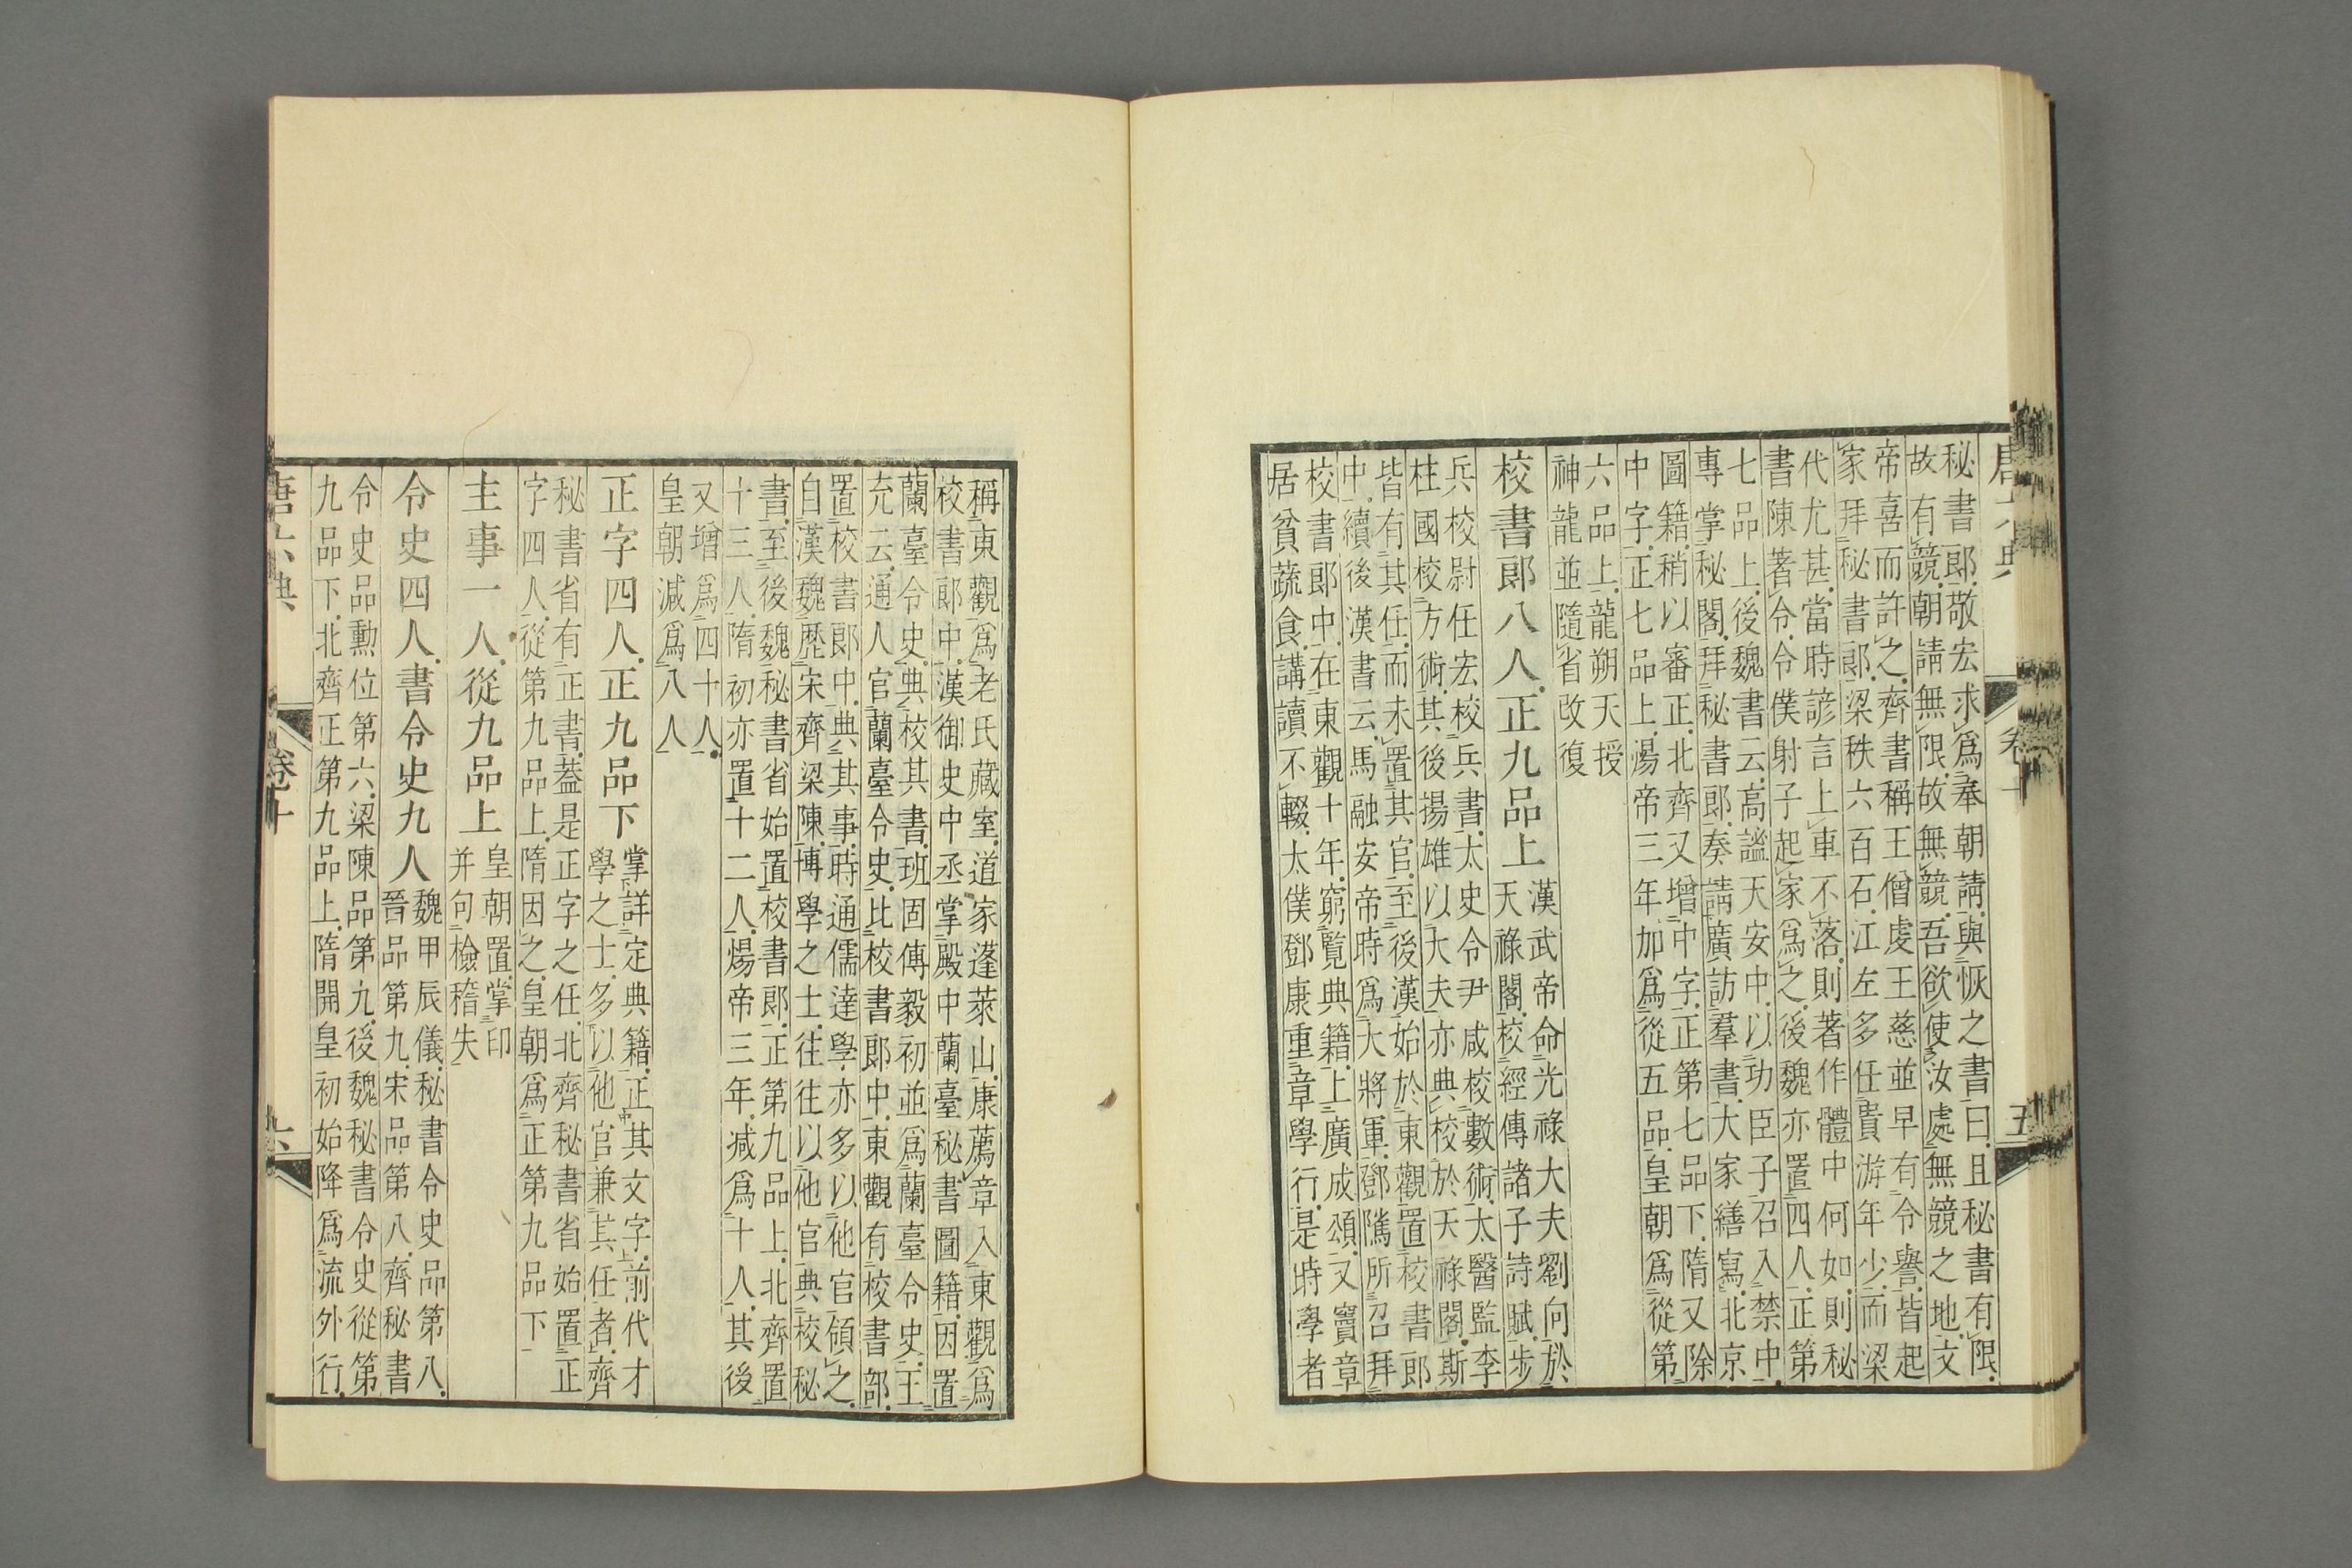 唐六典 卷十 五
秘書郎敬宏求爲奉朝請與恢之書曰且秘書有限
故有競朝請無限故無競吾欲使汝處無競之地文
帝喜而許之齊書稱王僧虔王慈並早有令譽皆起
家拜秘書郎梁秩六百石江左多任貴游年少而梁
代尤甚當時諺言上車不落則著作體中何如則秘
書陳著令令僕射子起家爲之後魏亦置四人正第
七品上後魏書云高謐天安中以功臣子召入禁中
專掌秘閣拜秘書郎奏請廣訪羣書大家繕寫北京
圖籍稍以審正北齊又增中字正第七品下隋又除
中字正七品上湯帝三年加爲從五品皇朝爲從第
六品上龍朔天授
神龍並隨省改復
校書郎八人正九品上
漢武帝命光祿大夫劉向於
天祿閣校經傳諸子詩賦步
兵校尉任宏校兵書太史令尹咸校數術太醫監李
柱國校方術其後揚雄以大夫亦典校於天祿閣斯
皆有其任而未置其官至後漢始於東觀置校書郎
中續後漢書云馬融安帝時爲大將軍鄧隲所召拜
校書郎中在東觀十年窮覧典籍上廣成頌又竇章
居貧蔬食講讀不輟太僕鄧康重章學行是時學者
稱東觀爲老氏藏室道家蓬萊山康薦章入東觀爲
校書郎中漢御史中丞掌殿中蘭臺秘書圖籍因置
蘭臺令史典校其書班固傅毅初並爲蘭臺令史王
充云通人官蘭臺令史比校書郎中東觀有校書部
置校書郎中典其事時通儒達學亦多以他官領之
自漢魏歷宋齊梁陳博學之士往往以他官典校秘
書至後魏秘書省始置校書郎正第九品上北齊置
十三人隋初亦置十二人煬帝三年减爲十人其後
又增爲四十人
皇朝減爲八人
正字四人正九品下
掌詳定典籍正其文字前代才
學之士多以他官兼其任者齊
秘書省有正書葢是正字之任北齊秘書省始置正
字四人從第九品上隋因之皇朝爲正第九品下
主事一人從九品上
皇朝置掌印
并句檢稽失
令史四人書令史九人
魏甲辰儀秘書令史品第八
晉品第九宋品第八齊秘書
令史品勳位第六梁陳品第九後魏秘書令史從第
九品下北齊正第九品上隋開皇初始降爲流外行
唐六典 卷十 六